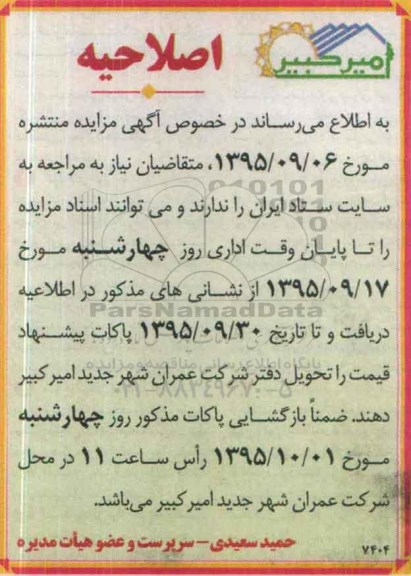 امیرکبیر
اصلاحیه
به اطلاع می‌رساند در خصوص آگهی مزایده منتشره
مورخ ۱۳۹۵/۰۹/۰۶، متقاضیان نیاز به مراجعه به
سایت ستاد ایران را ندارند و می توانند اسناد مزایده
را تا پایان وقت اداری روز چهارشنبه مورخ
۱۳۹۵/۰۹/۱۷ از نشانی های مذکور در اطلاعیه
دریافت و تا تاریخ ۱۳۹۵/۰۹/۳۰ پاکات پیشنهاد
قیمت را تحویل دفتر شرکت عمران شهر جدید امیرکبیر
دهند. ضمناً بازگشایی پاکات مذکور روز چهارشنبه
مورخ ۱۳۹۵/۱۰/۰۱ رأس ساعت ۱۱ در محل
شرکت عمران شهر جدید امیرکبیر می‌باشد.
حمید سعیدی - سرپرست و عضو هیأت مدیره
۷۴۰۴
ParsNamadData
پایگاه اطلاع رسانی مناقصه و مزایده
۰۲۱-۸۸۳۴۹۶۷۰-۵